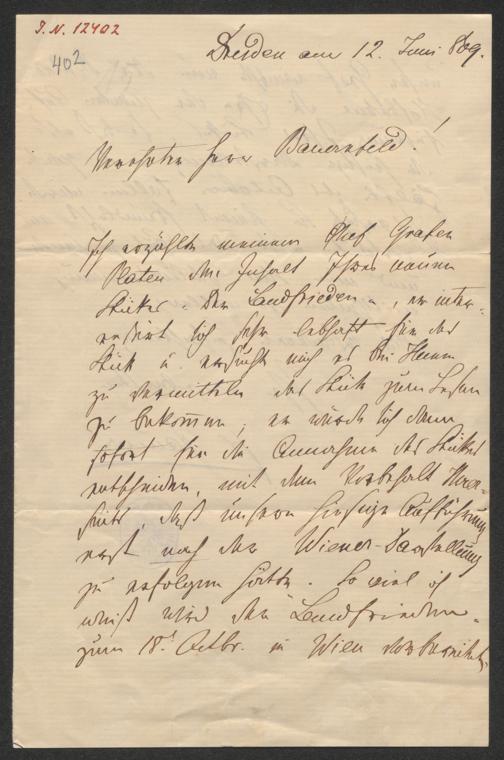 J. N. 12402
402
Dresden am 12. Juni 869.
Verehrter Herr Bauernfeld!
Ich erzählte meinem Chef Grafen
Platen den Inhalt Ihres neuen
Stückes „Der Landfrieden“, er inter-
essirt sich sehr lebhaft für das
Stück u. ersucht mich es bei Ihnen
zu vermitteln das Stück zum Lesen
zu bekommen, er würde sich dann
sofort für die Annahme des Stückes
entscheiden, mit dem Vorbehalt Ihrer-
seits, daß unsere hiesige Aufführung
erst nach der Wiener-Darstellung
zu erfolgen hätte. So viel ich
weiß wird der Landfrieden
zum 18t Octbr. in Wien vorbereitet,